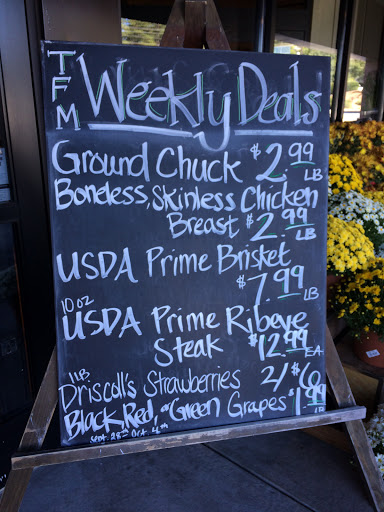 TFM Weekly Deals
Ground Chuck $2.99 LB
Boneless, Skinless Chicken
Breast $2.99 LB
USDA Prime Brisket
$7.99 LB
10 oz
USDA Prime Ribeye
Steak $12.99 EA
1LB
Driscoll's Strawberries 2/$6
Black, Red or Green Grapes $1.99 LB
Sept. 28th - Oct. 4th